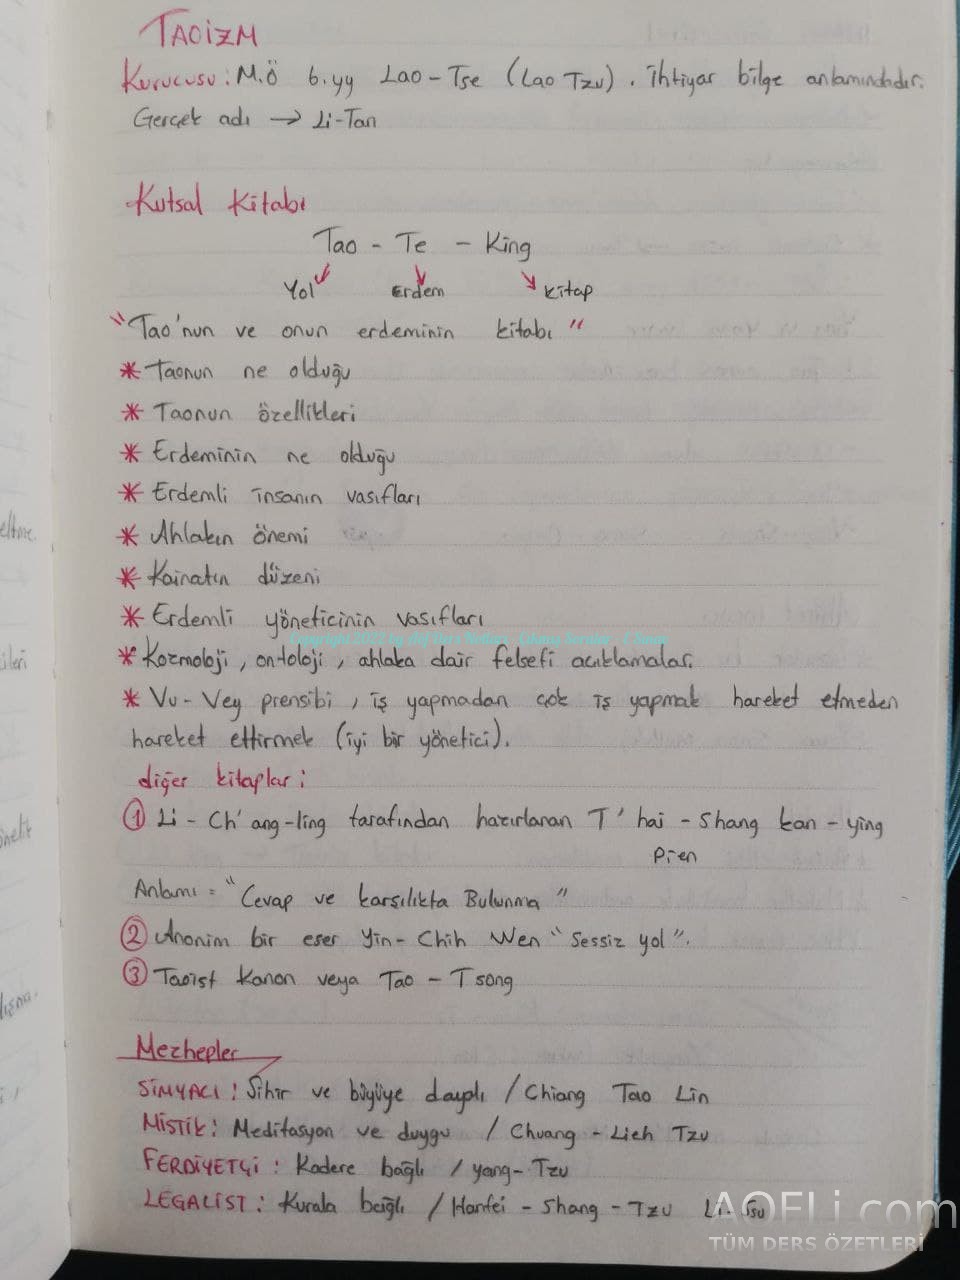 TAOİZM
Kurucusu: M.Ö 6.yy Lao-Tse (Lao Tzu). İhtiyar bilge anlamındadır.
Gerçek adı → Li-Tan
Kutsal Kitabı
Tao - Te - King
Yol Erdem Kitap
"Tao'nun ve onun erdeminin kitabı"
* Taonun ne olduğu
* Taonun özellikleri
* Erdeminin ne olduğu
* Erdemli insanın vasıfları
* Ahlakın önemi
* Kainatın düzeni
* Erdemli yöneticinin vasıfları
* Kozmoloji, ontoloji, ahlaka dair felsefi açıklamalar.
* Vu-Vey prensibi, iş yapmadan çok iş yapmak hareket etmeden
hareket ettirmek (iyi bir yönetici).
diğer kitaplar:
① Li - Ch'ang-ling tarafından hazırlanan T'hai - Shang kan-ying
Pien
Anlamı = "Cevap ve karşılıkta Bulunma"
② Anonim bir eser Yin-Chih Wen "Sessiz yol".
③ Taoist Kanon veya Tao - Tsong
Mezhepler
SİMYACI: Sihir ve büyüye dayalı / Chiang Tao Lin
MİSTİK: Meditasyon ve duygu / Chuang - Lieh Tzu
FERDİYETÇİ: Kadere bağlı / yang-Tzu
LEGALİST: Kurala bağlı / Hanfei - Shang - Tzu Li-Tsu
AOFLi.com
TÜM DERS ÖZETLERİ